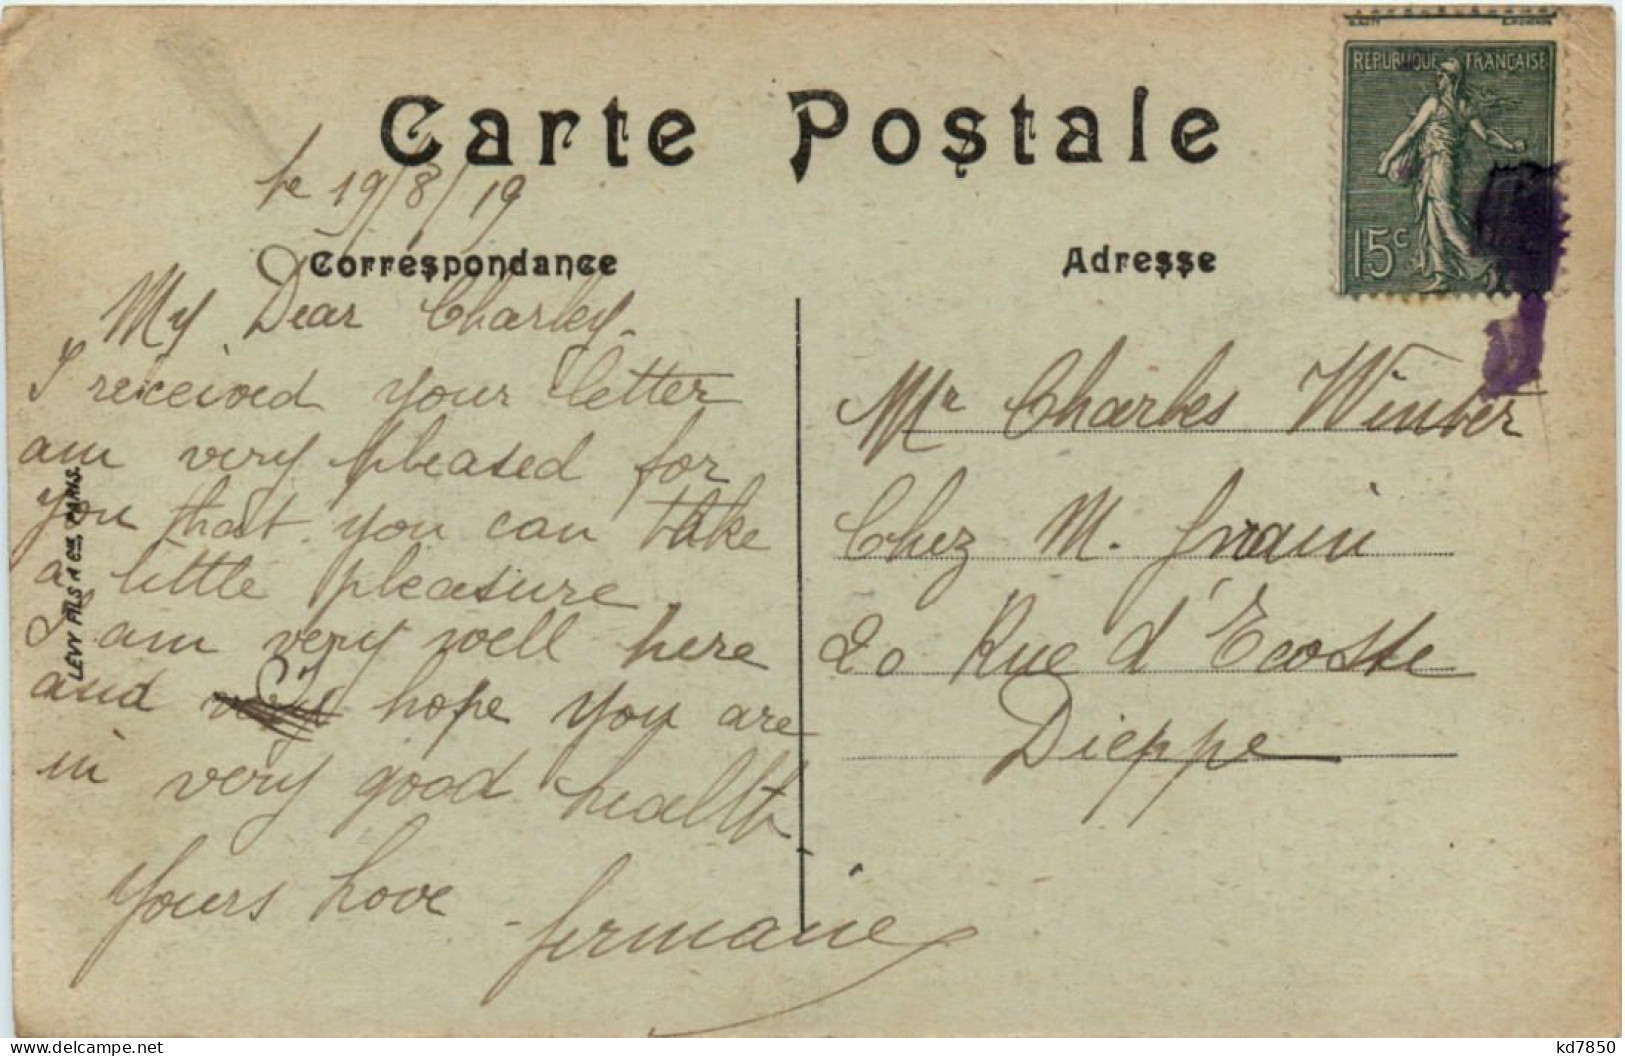 Carte Postale
le 19/8/19
Correspondance
My Dear Charley.
I received your letter
am very pleased for
you that you can take
a little pleasure.
I am very well here
and very hope you are
in very good health
Yours Love
Germaine
LEVY FILS & Cie, PARIS.
Adresse
REPUBLIQUE FRANCAISE
15c
Mr Charles Winter
Chez M.
20 Rue d'Ecosse
Dieppe
delcampe.net
kd7850